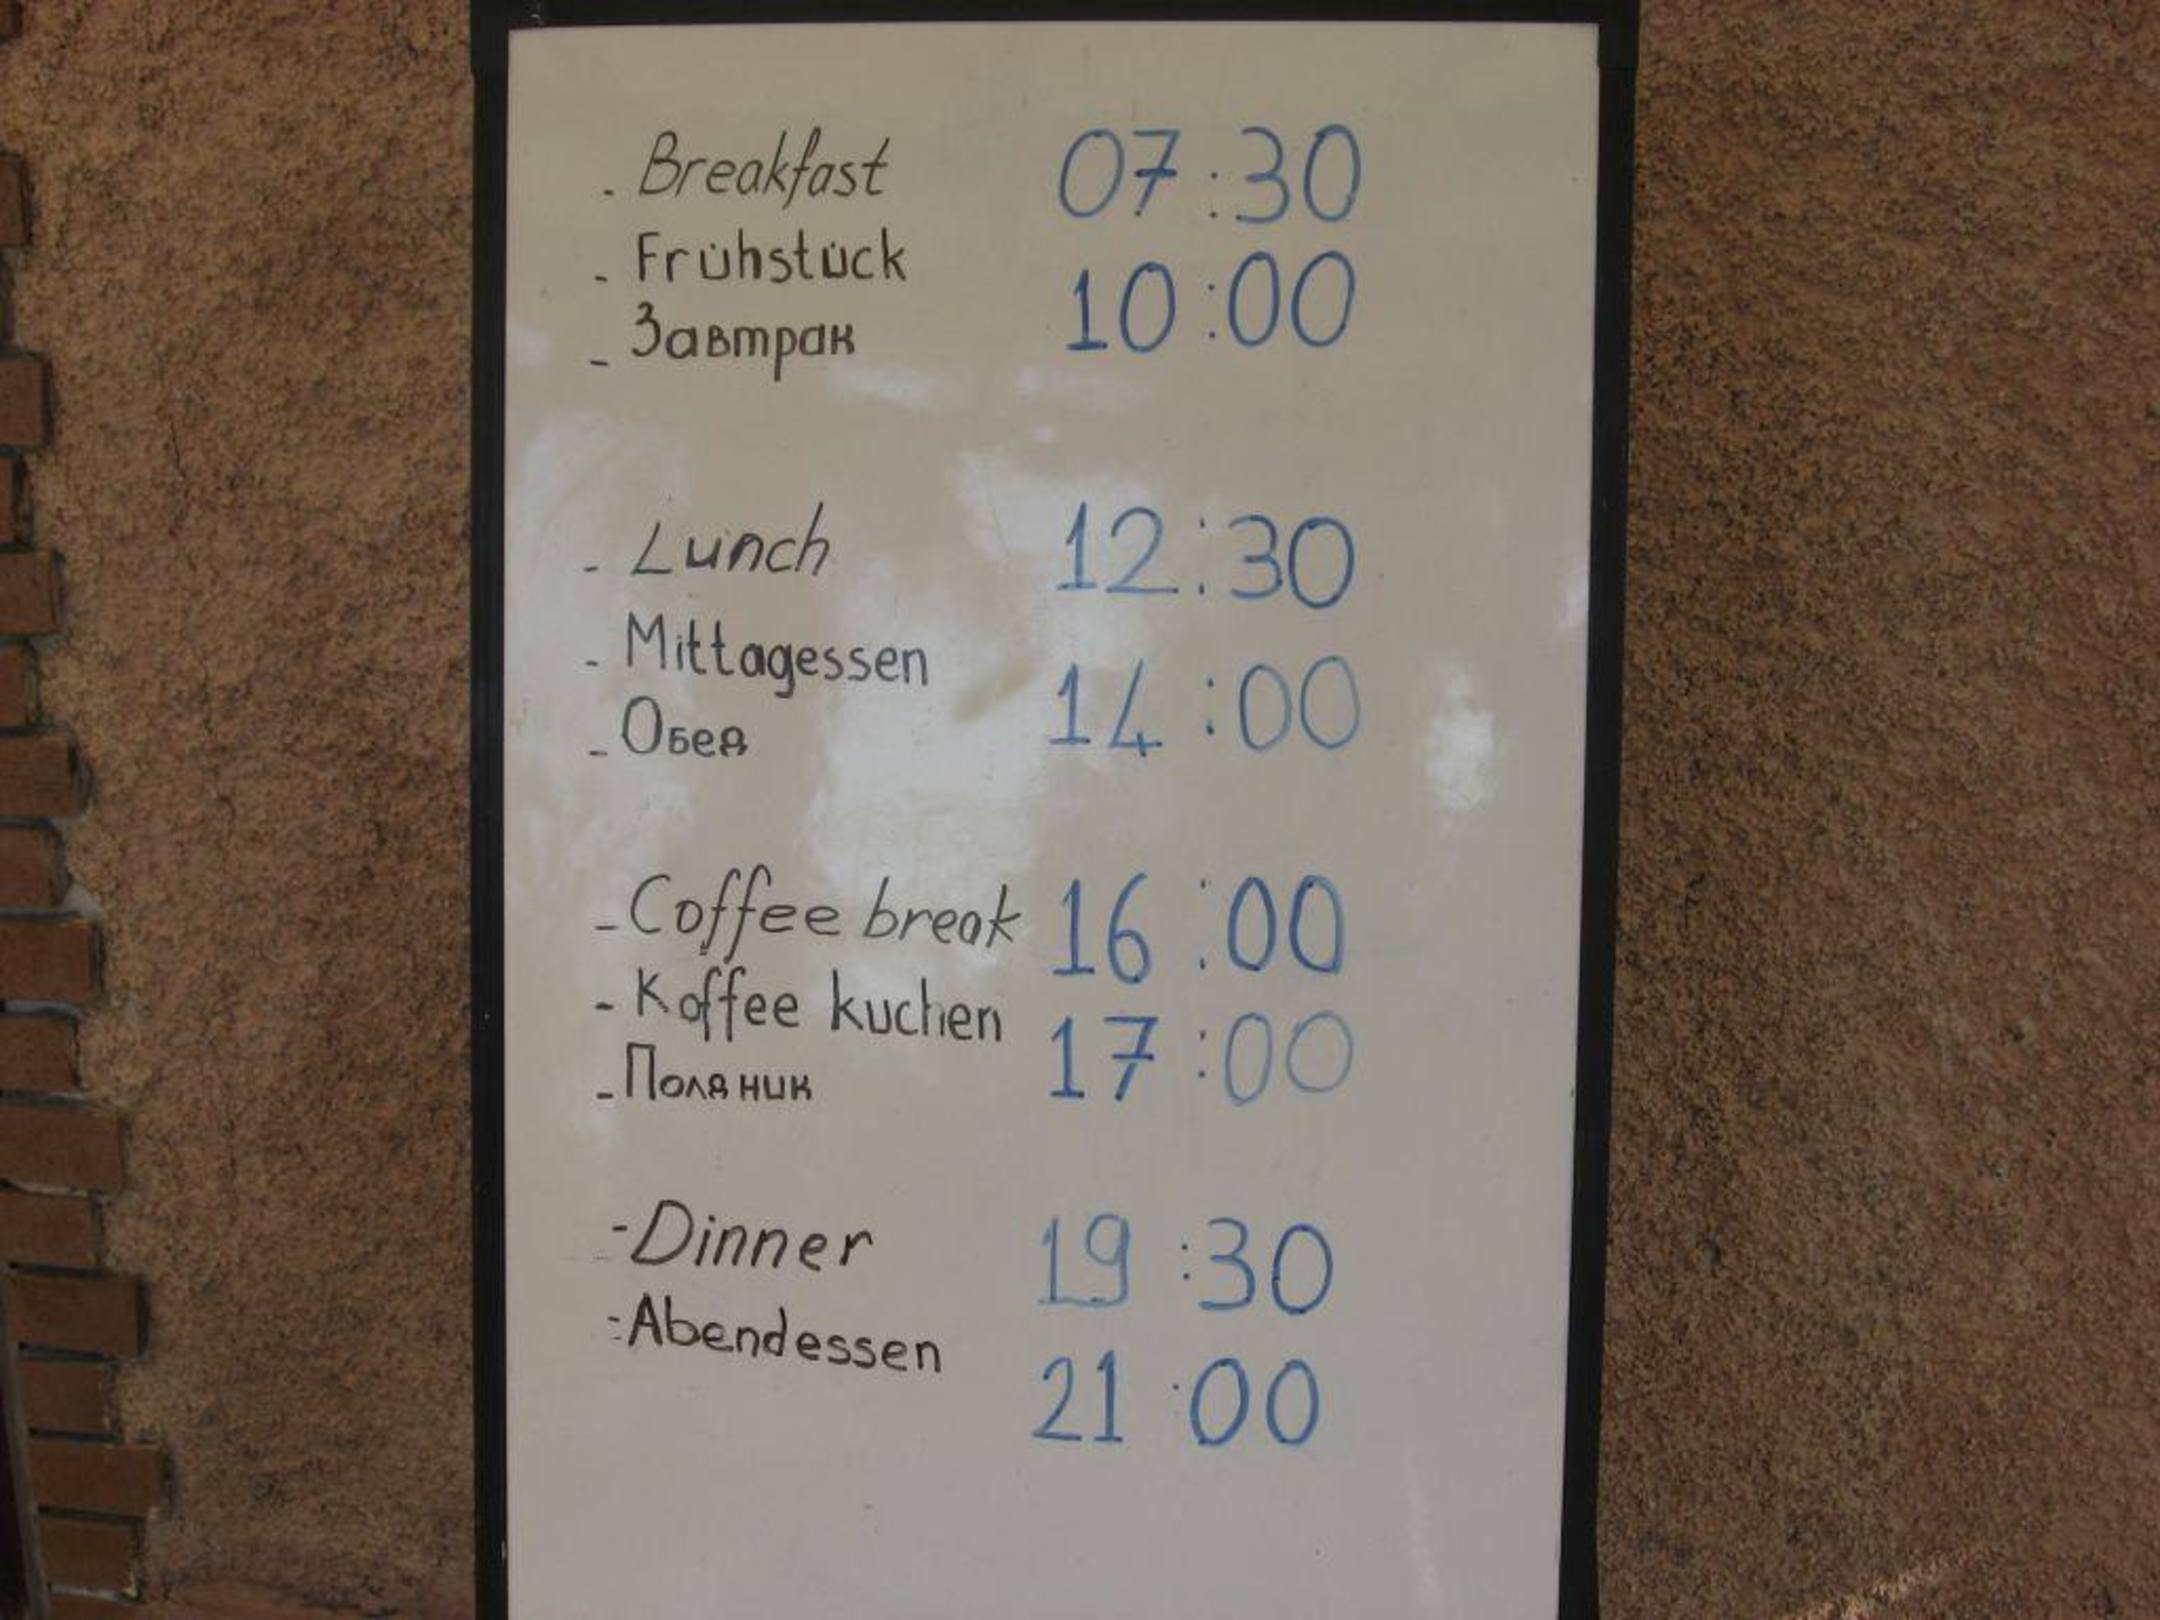 - Breakfast 07:30
- Frühstück
- Завтрак 10:00
- Lunch 12:30
- Mittagessen
- Обед 14:00
- Coffee break 16:00
- Koffee kuchen
- Полдник 17:00
- Dinner 19:30
- Abendessen
21:00